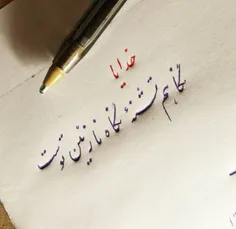 خدایا
نگاهم تشنهٔ نگاه نازنین توست